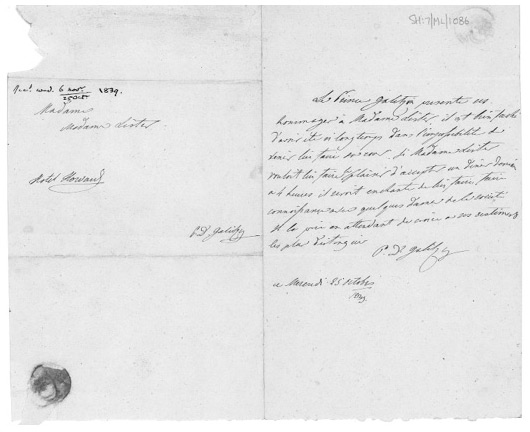 SH:7/ML/1086
Recd. Wed. 6 novr. 1839.
25 Oct
Madame
Madame Lister
Hotel Howard
P. D. Galitzin
Le Prince Galitzin présente ses
hommages à Madame Lister, il est très faché
d'avoir été si longtemps dans l'impossibilité de
venir lui faire sa cour. Si Madame Lister
vouloit lui faire le plaisir d'accepter un diner demain
a 4 heures il seroit enchanté de lui faire faire
connaissance avec quelques Dames de la société
Il la prie en attendant de croire a ses sentiments
les plus distingués
P. D. Galitzin
ce Mercredi 25 octobre
1839